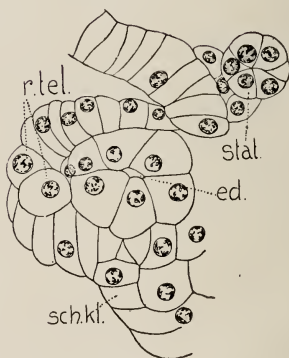 r.tel.
stat.
ed.
sch.kl.